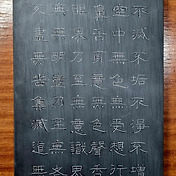 不滅不垢不淨不增
空中無色無受想行
鼻舌身意無色聲香
眼界乃至無意識界
無無明盡乃至無老
死盡無苦集滅道無